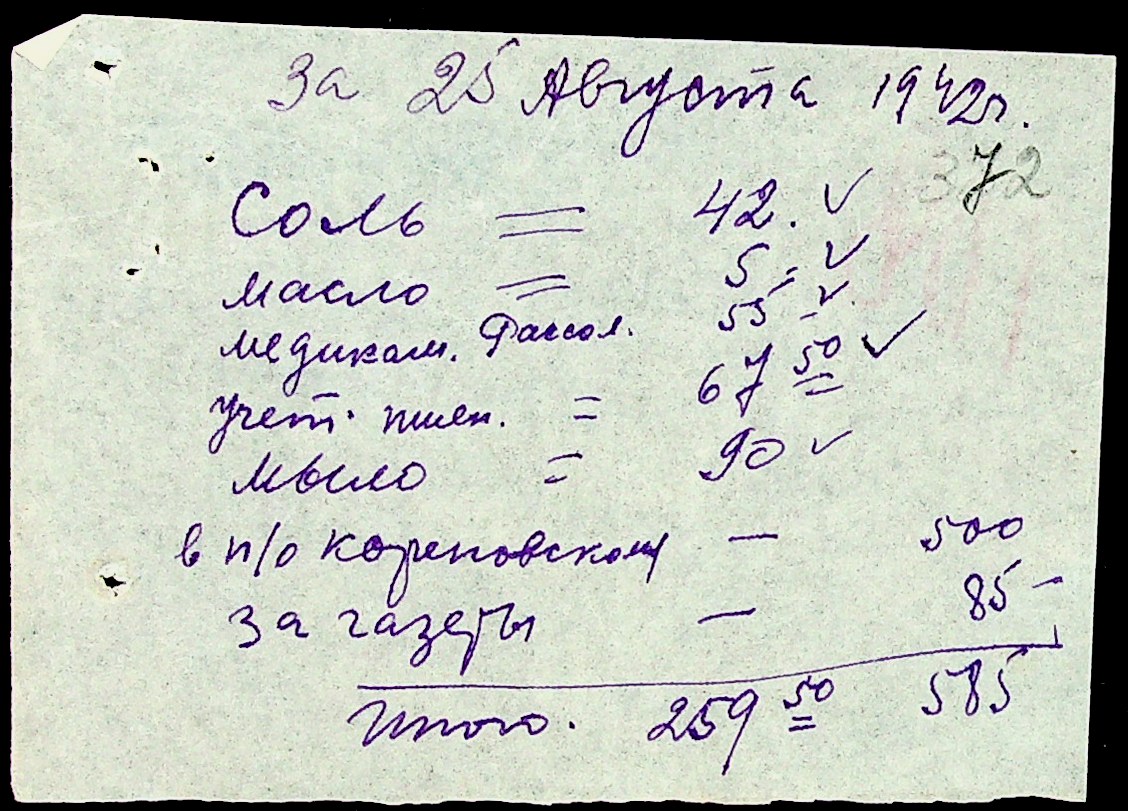 За 25 Августа 1942г.
372
Соль = 42.
масло = 5 -
медикам. Фассол. 55 -
учет. пшен. = 67 50
мыло = 90
в п/о Кореновскому — 500
за газеты — 85 -
Итого. 259 50 585